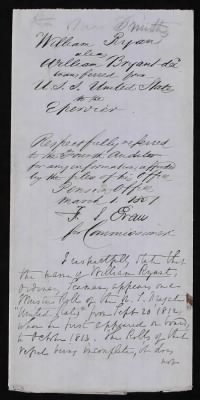 William Ryan
alias
William Bryant
transferred from
U.S.S. United States
to the
Epervier
Respectfully referred
to the Fourth Auditor
for any information afforded
by the files of his Office
Pension Office
March 1, 18
F. S. Evans
for Commissioner
I respectfully state that
the name of William Bryant,
ordinary Seaman, appears on a
Muster Rolls of the U.S. Frigate
"United States" from Sept 20 1812,
when he first appeared on board,
to October 1813. The Rolls of that
vessel being incomplete, it does
not